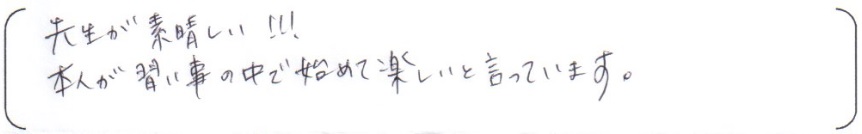 先生が素晴しい!!!
本人が習い事の中で始めて楽しいと言っています。